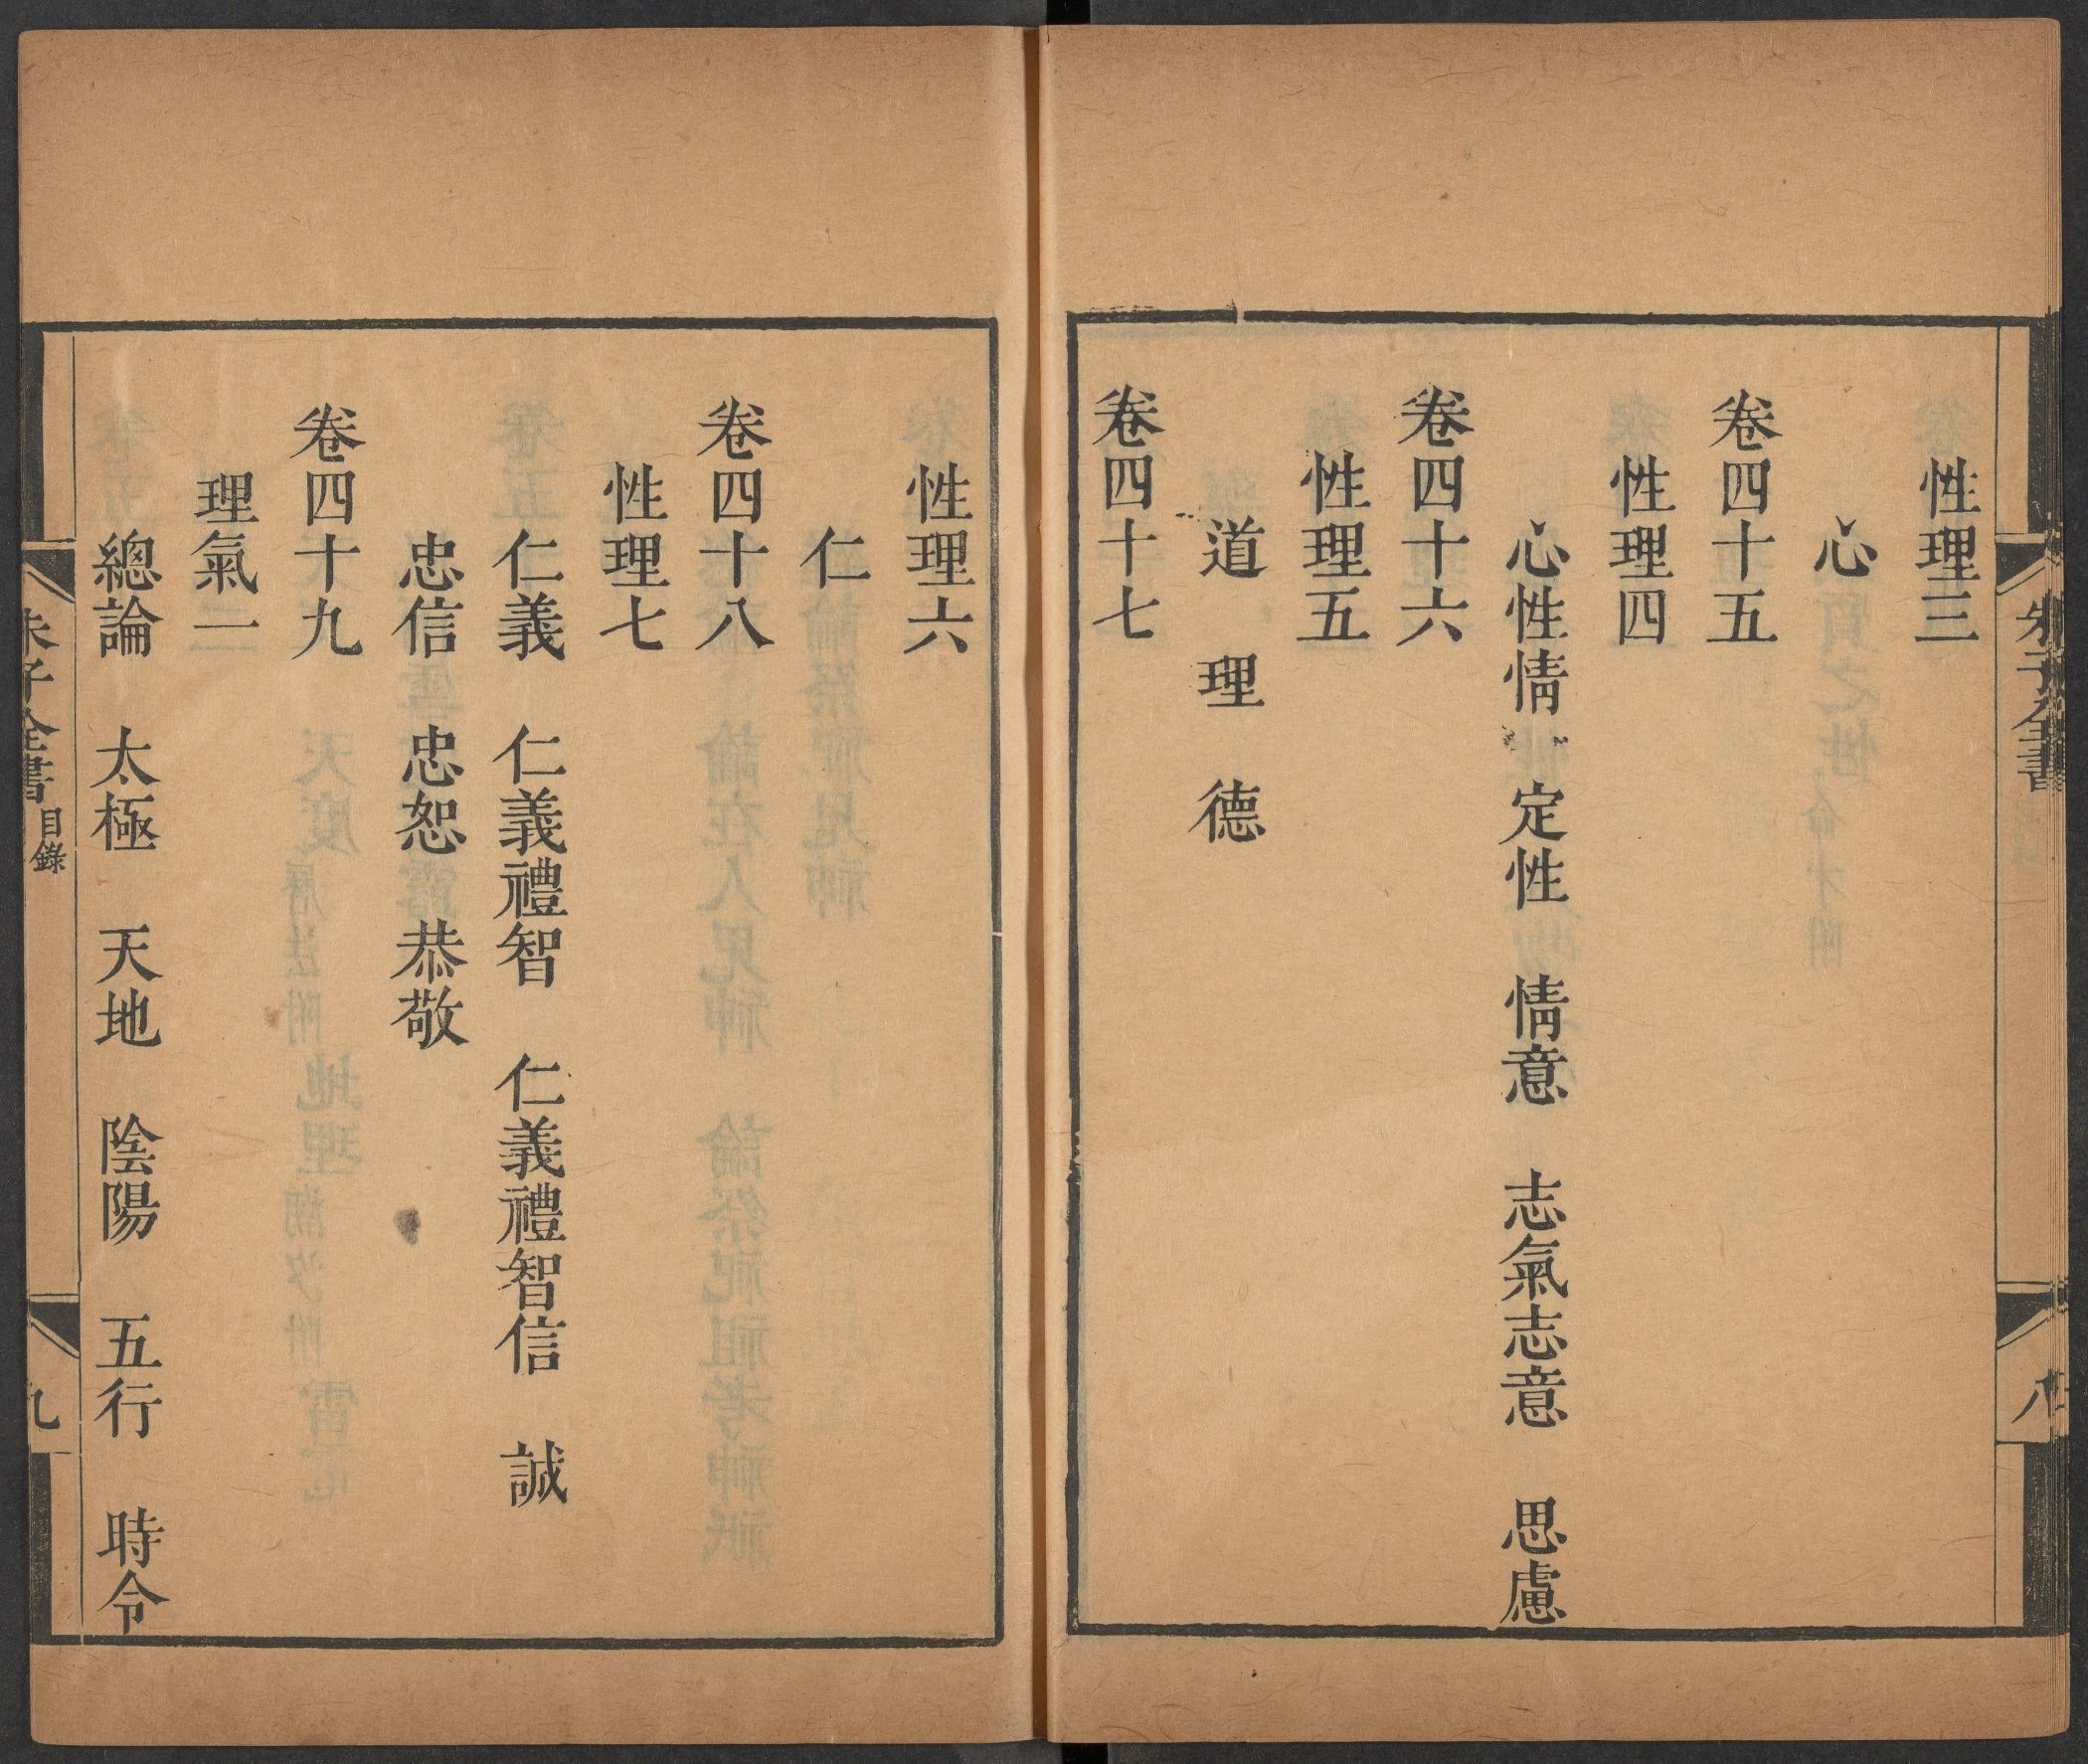 朱子全書
八
性理三
心
卷四十五
性理四
心性情 定性 情意 志氣志意 思慮
卷四十六
性理五
道 理 德
卷四十七
性理六
仁
卷四十八
性理七
仁義 仁義禮智 仁義禮智信 誠
忠信 忠恕 恭敬
卷四十九
理氣一
總論 太極 天地 陰陽 五行 時令
朱子全書 目錄
九